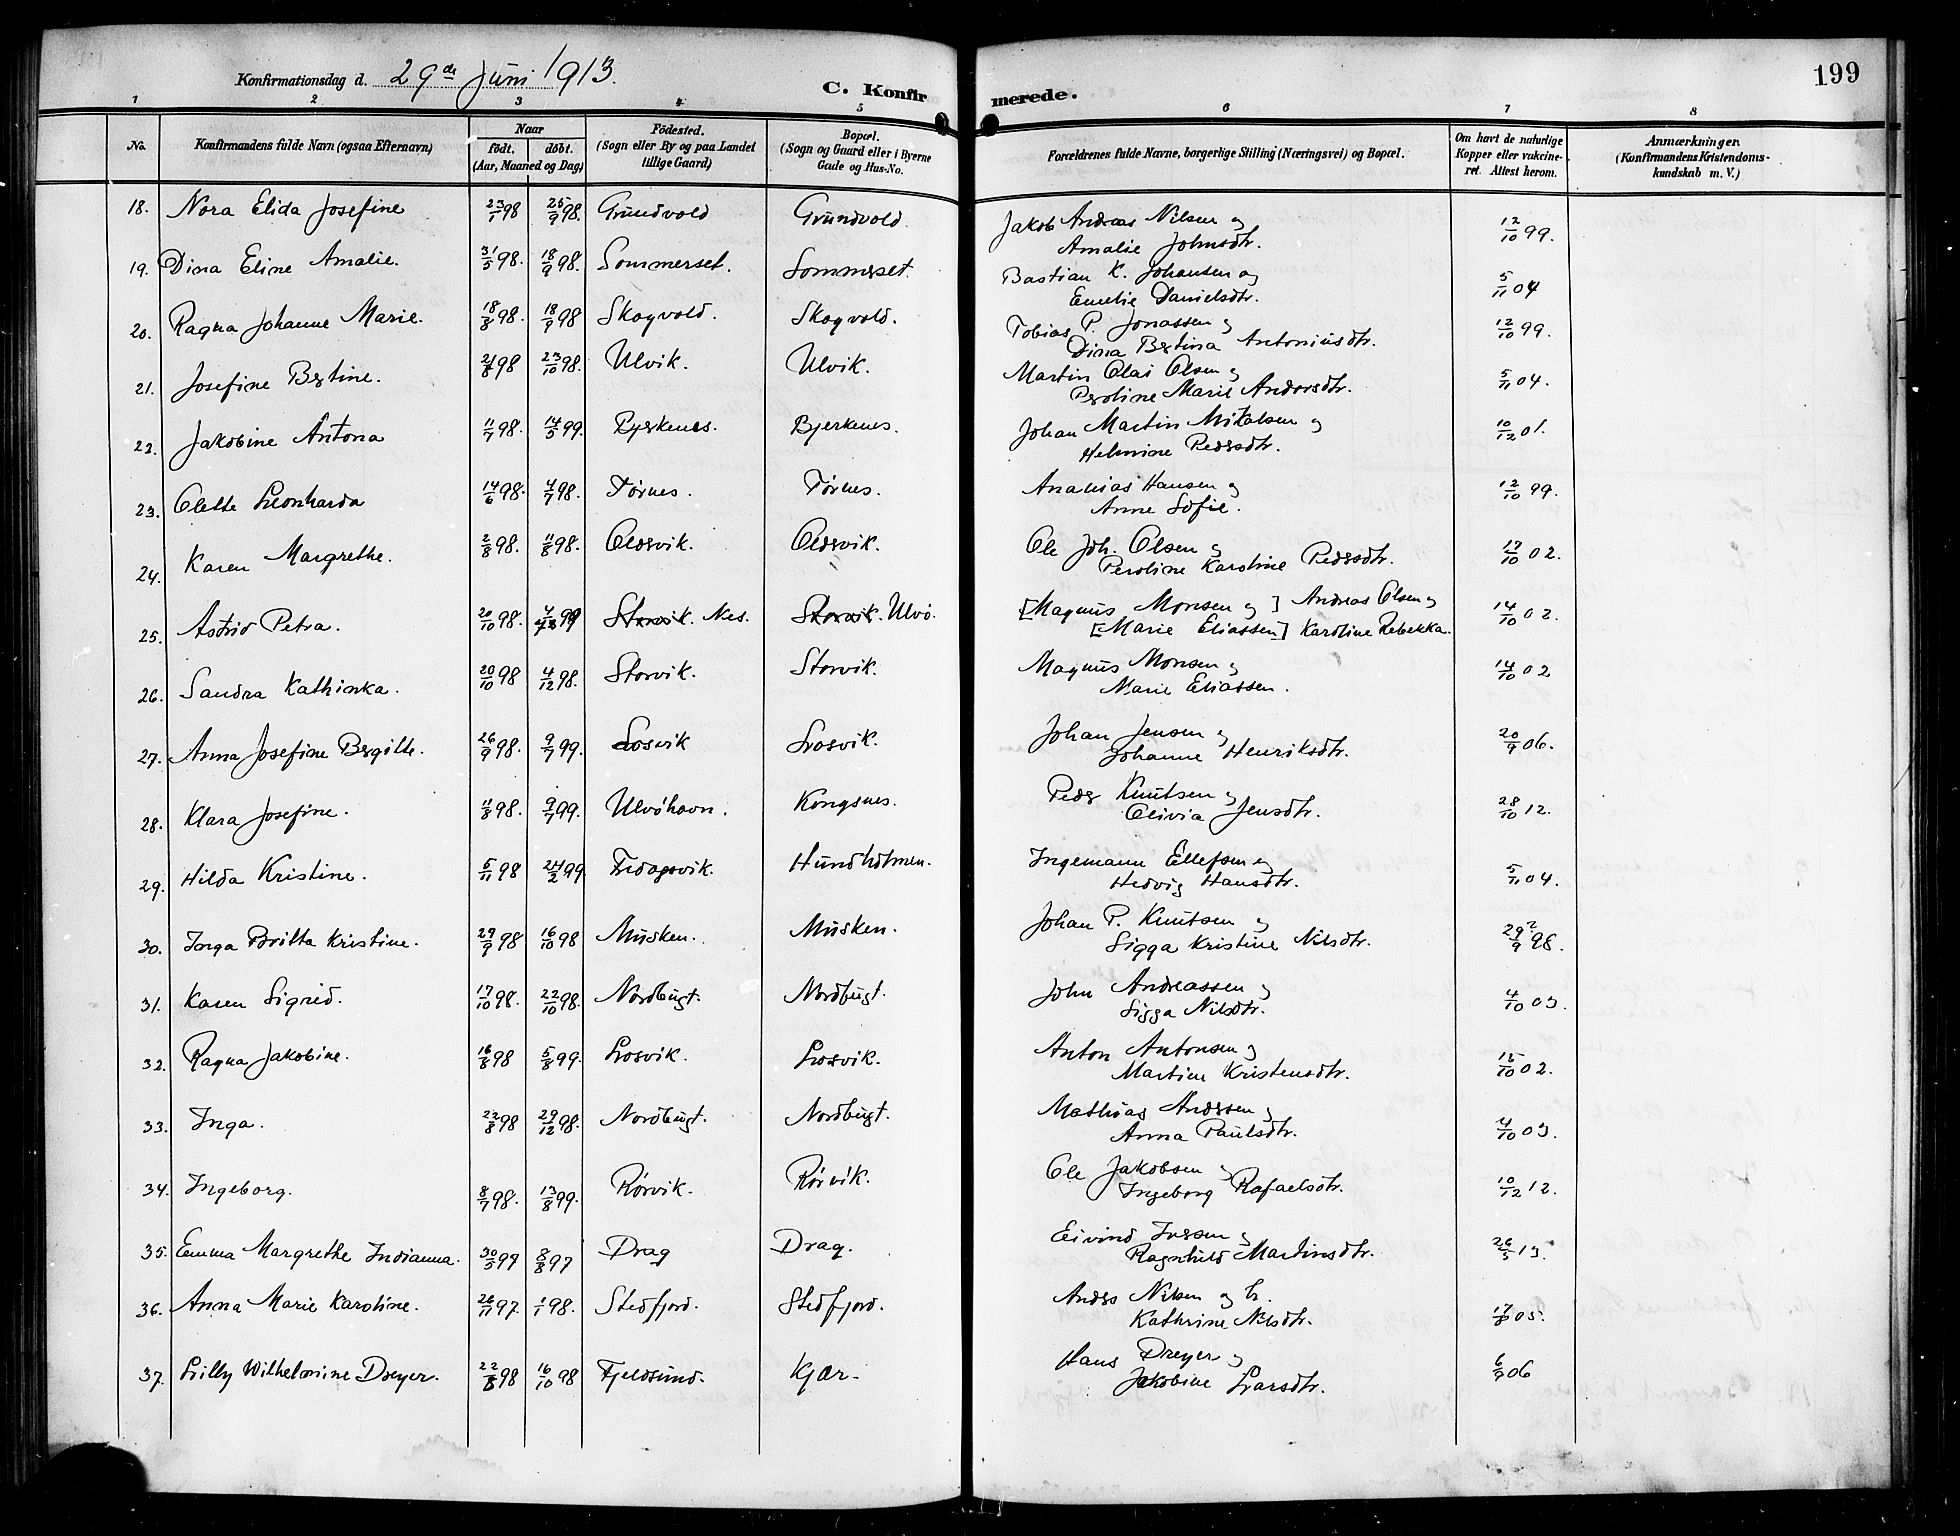 199
Konfirmationsdag d. 29de Juni 1913.
C. Konfirmerede.
1 2 3 4 5 6 7 8
No.
Konfirmandens fulde Navn (ogsaa Efternavn)
Naar
født. døbt.
(Aar, Maaned og Dag)
Fødested.
(Sogn eller By og paa Landet
tillige Gaard)
Bopæl.
(Sogn og Gaard eller i Byerne
Gade og Hus-No.
Forældrenes fulde Navne, borgerlige Stilling (Næringsvei) og Bopæl.
Om havt de naturlige
Kopper eller vakcine-
ret. Attest herom.
Anmærkninger.
(Konfirmandens Kristendoms-
kundskab m. V.)
18. Nora Elida Josefine 23/1 98 25/9 98. Grundvold Grundvold. Jakob Andreas Nilsen og 12/10 99.
Amalie Johnsdtr.
19. Dina Eline Amalie. 31/5 98. 18/9 98. Sommerset. Sommerset. Bastian K. Johansen og 5/11 04
Emelie Danielsdtr.
20. Ragna Johanne Marie. 18/8 98. 18/9 98 Skogvold. Skogvold. Tobias P. Jonassen og 12/10 99.
Dina Bertina Antoniusdtr.
21. Josefine Bertine. 21/8 98 23/10 98. Ulvik. Ulvik. Martin Olai Olsen og 5/11 04.
Peroline Marie Andersdtr.
22. Jakobine Antona 11/7 98. 14/5 99. Bjerkenes. Bjerkenes. Johan Martin Mikalsen og 10/12 01.
Helmine Pedersdtr.
23. Olette Leonharda 14/6 98. 4/7 98. Tørnes. Tørnes. Ananias Hansen og 12/10 99.
Anne Sofie.
24. Karen Margrethe. 2/8 98. 11/8 98. Oldervik. Oldervik. Ole Joh. Olsen og 17/10 02.
Peroline Karoline Pedersdtr.
25. Astrid Petra. 20/10 98. 99 Storvik. Nes. Storvik. Ulvø. [Magnus Monsen og] Andreas Olsen og 14/10 02.
[Marie Eliassen] Karoline Rebekka.
26. Sandra Kathinka. 20/10 98 4/12 98. Storvik. Storvik. Magnus Monsen og 14/10 02
Marie Eliassen.
27. Anna Josefine Bergitte. 26/9 98. 9/7 99. Losvik Losvik. Johan Jensen og 20/9 06.
Johanne Henriksdtr.
28. Klara Josefine. 11/8 98. 9/7 99. Ulvøhavn. Kongsnes. Peder Knutsen og 28/10 12.
Olivia Jensdtr.
29. Hilda Kristine. 5/11 98 24/2 99 Fredagsvik. Hundholmen. Ingemann Ellefsen og 5/11 04.
Hedvig Hansdtr.
30. Inga Britta Kristine. 29/9 98 16/10 98 Musken. Musken. Johan P. Knutsen og 29/9 98.
Sigga Kristine Nilsdtr.
31. Karen Sigrid. 17/10 98. 22/10 98. Nordbugt. Nordbugt. John Andreassen og 4/10 03.
Sigga Nilsdtr.
32. Ragna Jakobine. 16/8 98 5/8 99. Losvik. Losvik. Anton Antonsen og 15/10 02.
Martine Kristensdtr.
33. Inga. 22/8 98 29/12 98. Nordbugt. Nordbugt. Mathias Andersen og 4/10 03.
Anna Paulsdtr.
34. Ingeborg. 8/7 98. 13/8 99. Rørvik. Rørvik. Ole Jakobsen og 10/12 12.
Ingeborg Rafaelsdtr.
35. Emma Margrethe Indianna. 30/5 97 8/8 97 Drag Drag. Eivind Iversen og 26/5 13.
Ragnhild Martinsdtr.
36. Anna Marie Karoline. 26/11 97. 1/1 98. Stedfjord. Stedfjord. Anders Nilsen og h. 05.
Kathrine Nilsdtr.
37. Lilly Wilhelmine Dreyer. 22/8 98 16/10 98 Fjeldsund. Kjær. Hans Dreyer og 6/9 06
Jakobine Larsdtr.